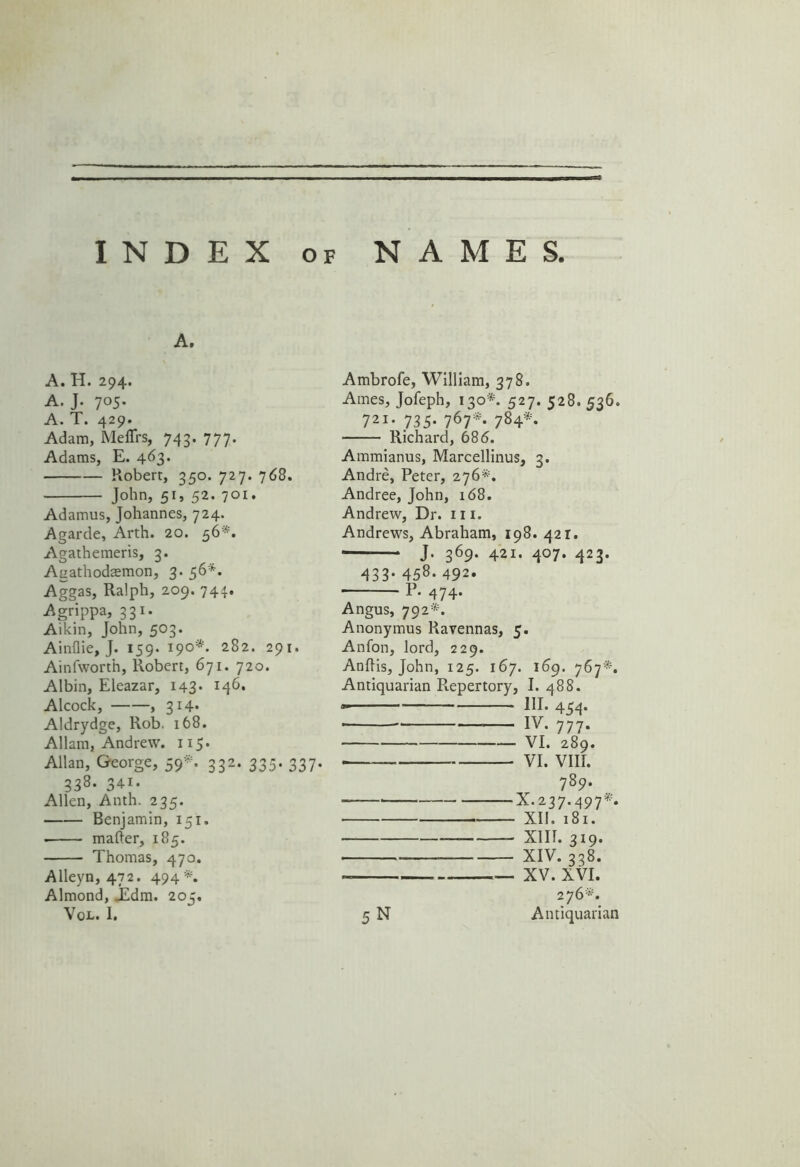 INDEX OF NAMES.
A.
A. H. 294.
A. J. 705.
A. T. 429.
Adam, Meſſrs, 743. 777.
Adams, E. 463.
——— Robert, 350. 727. 768.
——— John, 51, 52. 701.
Adamus, Johannes, 724.
Agarde, Arth. 20. 56*.
Agathemeris, 3.
Agathodæmon, 3. 56*.
Aggas, Ralph, 209. 744.
Agrippa, 331.
Aikin, John, 503.
Ainſlie, J. 159. 190*. 282. 291.
Ainſworth, Robert, 671. 720.
Albin, Eleazar, 143. 146.
Alcock, ——, 314.
Aldrydge, Rob. 168.
Allam, Andrew. 115.
Allan, George, 59*. 332. 335. 337.
338. 341.
Allen, Anth. 235.
—— Benjamin, 151.
—— maſter, 185.
—— Thomas, 470.
Alleyn, 472. 494*.
Almond, Edm. 205.
VOL. I.
Ambroſe, William, 378.
Ames, Joſeph, 130*. 527. 528. 536.
721. 735. 767*. 784*.
—— Richard, 686.
Ammianus, Marcellinus, 3.
Andrè, Peter, 276*.
Andree, John, 168.
Andrew, Dr. 111.
Andrews, Abraham, 198. 421.
——— J. 369. 421. 407. 423.
433. 458. 492.
——— P. 474.
Angus, 792*.
Anonymus Ravennas, 5.
Anſon, lord, 229.
Anſtis, John, 125. 167. 169. 767*.
Antiquarian Repertory, I. 488.
———————— III. 454.
———————— IV. 777.
———————— VI. 289.
———————— VI. VIII.
789.
———————— X. 237. 497*.
———————— XII. 181.
———————— XIII. 319.
———————— XIV. 338.
———————— XV. XVI.
276*.
5 N Antiquarian